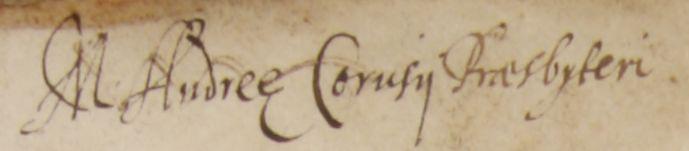 M. Andreę Corusij Præsbyteri